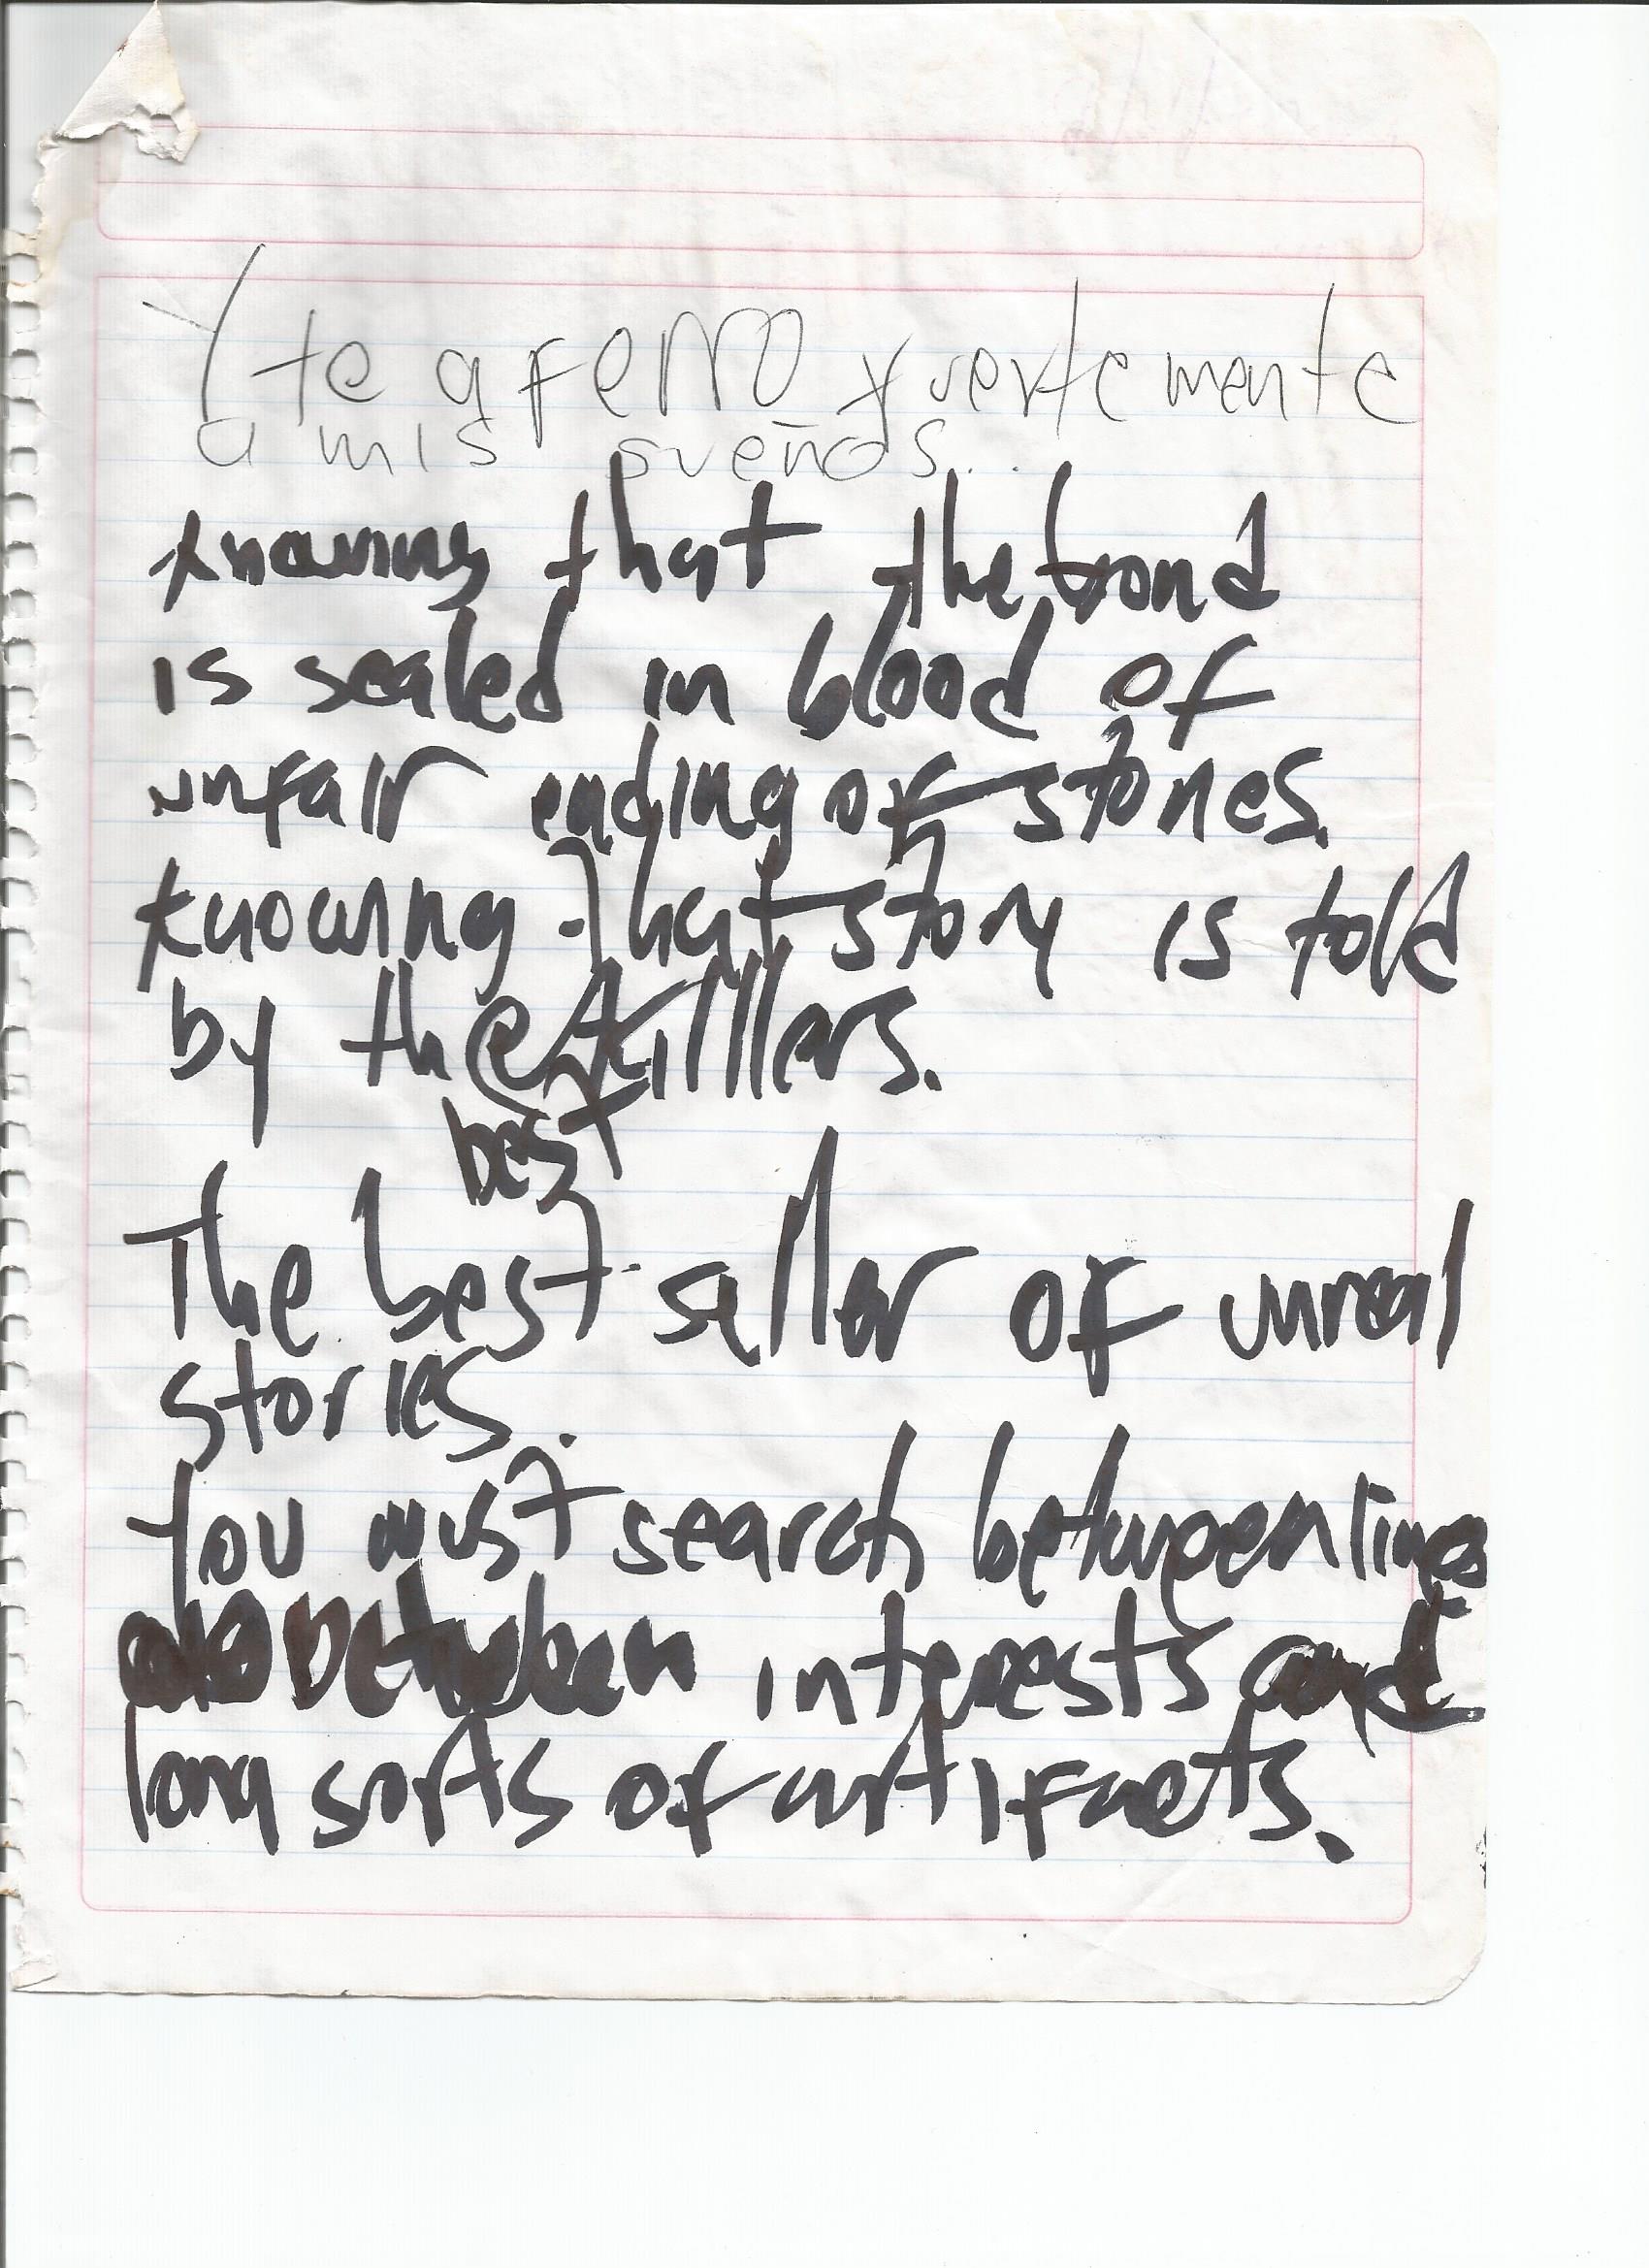 Y te aferro fuertemente
a mis sueños...
knowing that the bond
is sealed in blood of
unfair ending of stories.
knowing that story is told
by the killlers.
best
The best seller of unreal
stories.
You must search between lines
between interests and
long sorts of artifacts.